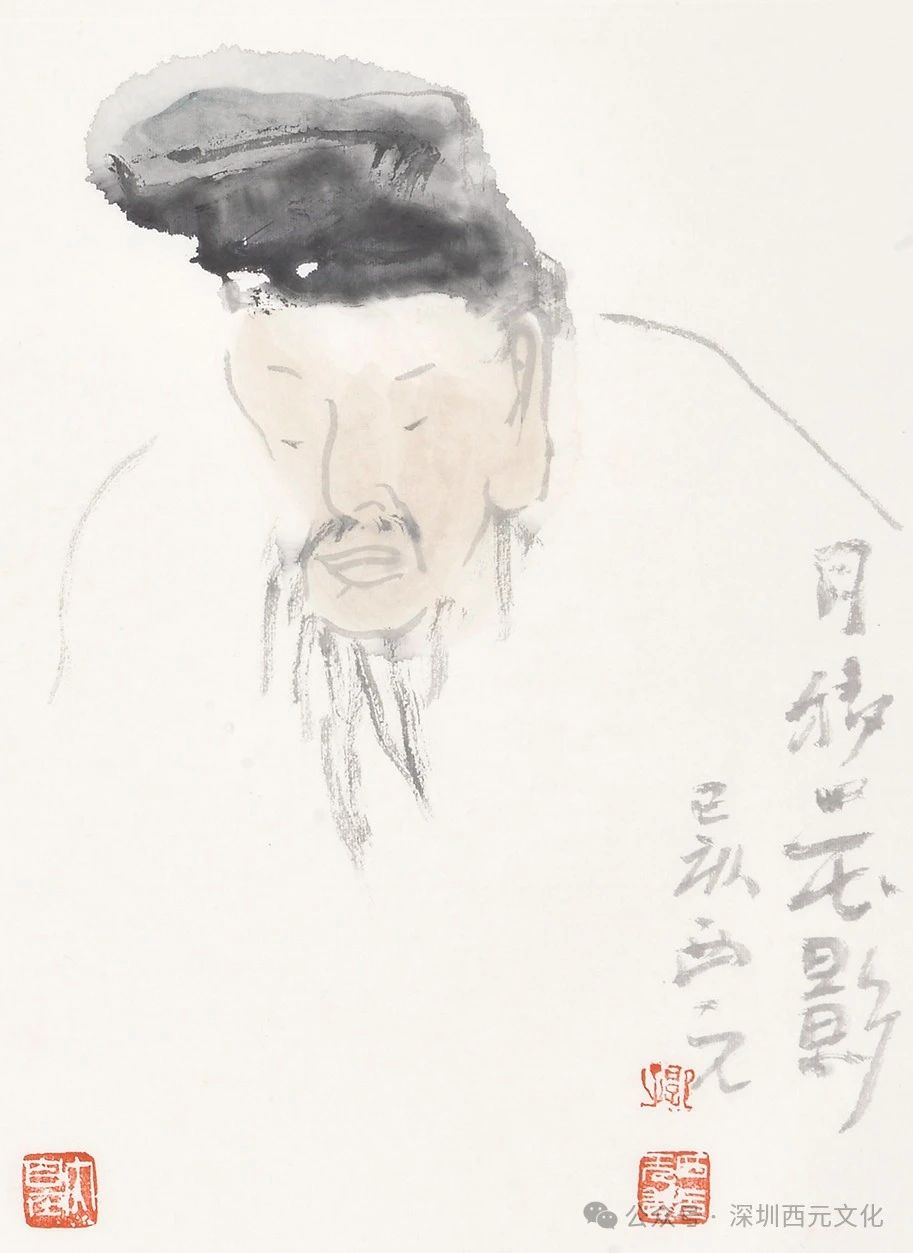 月移花影
己亥西元
公众号·深圳西元文化